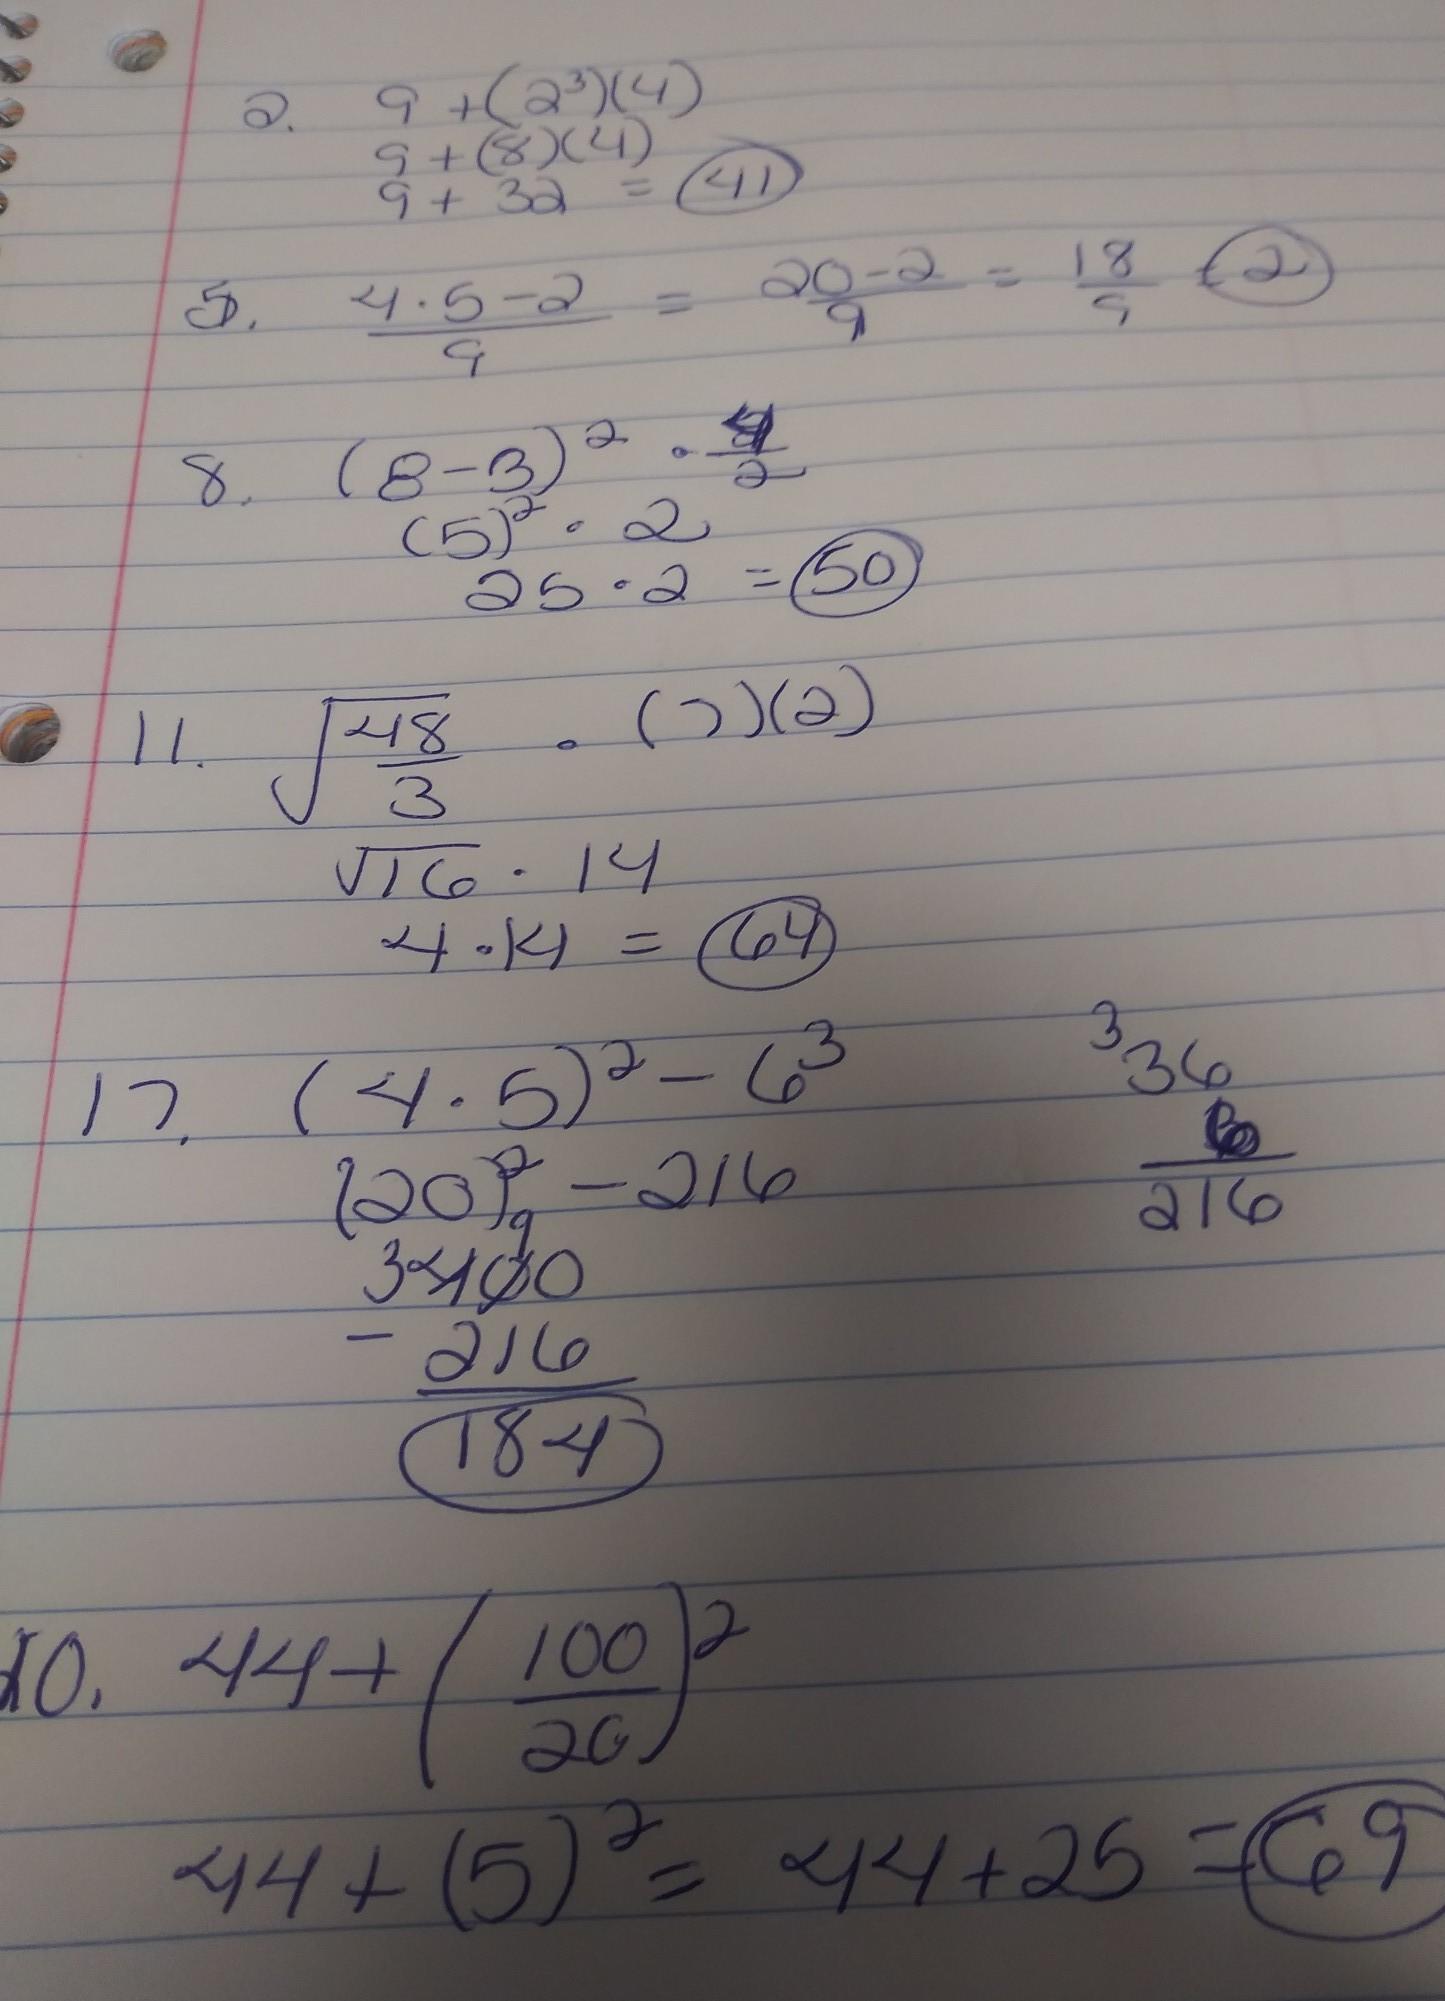 2. 9 + (2³)(4)
9 + (8)(4)
9 + 32 = 41
5. \frac{4 · 5 - 2}{9} = \frac{20 - 2}{9} = \frac{18}{9} = 2
8. (8 - 3)² · \frac{4}{2}
(5)² · 2
25 · 2 = 50
11. \sqrt{\frac{48}{3}} · (7)(2)
√16 · 14
4 · 14 = 64
17. (4 · 5)² - 6³
(20)² - 216
3 9
400
- 216
184
3
36
6
216
44 + (\frac{100}{20})²
44 + (5)² = 44 + 25 = 69